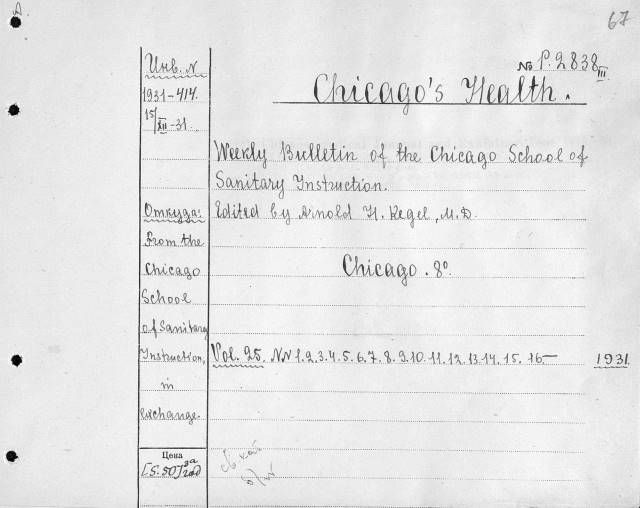 67
Инв. N
№ P.2838 III
1931-414.
Chicago's Health.
15/XII-31.
Weekly Bulletin of the Chicago School of
Sanitary Instruction.
Откуда:
Edited by Arnold H. Kegel, M.D.
From the
Chicago
Chicago. 8°.
School
of Sanitary
Instruction,
Vol. 25. NN 1.2.3.4.5.6.7.8.9.10.11.12.13.14.15.16- 1931.
in
exchange.
Цена
[5.50] за год